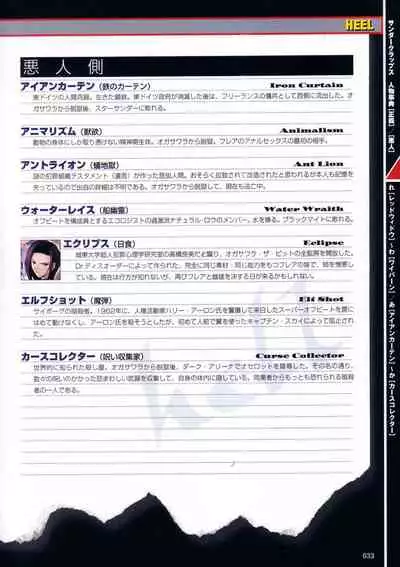 HEEL
悪人側
アイアンカーテン（鉄のカーテン） Iron Curtain
東ドイツの人間兵器。生きた鋼鉄。東ドイツ政府が消滅した後は、フリーランスの傭兵として西側に流出した。オ
ガサワラから脱獄後、スターサンダーに敗れる。
アニマリズム（獣欲） Animalism
動物の身体にしか取り憑けない精神寄生体。オガサワラから脱獄、フレアのアナルセックスの最初の相手。
アントライオン（蟻地獄） Ant Lion
謎の犯罪組織テスタメント（遺言）が作った昆虫人間。おそらく拉致されて改造されたと思われるが本人も記憶を
失っているので出自の詳細は不明である。オガサワラから脱獄して、現在も逃亡中。
ウォーターレイス（船幽霊） Water Wraith
オフビートを構成員とするエコロジストの過激派ナチュラル・ロウのメンバー。水を操る。ブラックマイトに敗れる。
エクリプス（日食） Eclipse
城東大学超人犯罪心理学研究室の高橋良美七と煽り、オガサワラ・ザ・ピットの全監房を開放した。
Dr.ディスオーダーによって作られた、完全に同じ素材・同じ能力をもつフレアの妹で、姉を憎悪し
ている。現在は行方が知れないが、再びフレアと雌雄を決する日が来るかもしれない。
エルフショット（魔弾） Elf Shot
サイボーグの暗殺者。1962年に、人権活動家ハリー・アーロン氏を警護して来日したスーパーオフビートを罠に
はめて動けなくし、アーロン氏を殺そうとしたが、初めて人前で翼を使ったキャプテン・スカイによって阻止され
た。
カースコレクター（呪い収集家） Curse Collector
世界的に知られた殺し屋。オガサワラから脱獄後、ダーク・アリーナでオセロットを陵辱した。その名の通り、
数々の呪いのかかった忌まわしい武器を収集して、自身の体内に隠している。同業者からもっとも恐れられる暗殺
者の一人である。
サンダークラップス 人物事典［正義］／［悪人］
れ［レッドウィドウ］～わ［ワイバーン］・あ［アイアンカーテン］～か［カースコレクター］
033